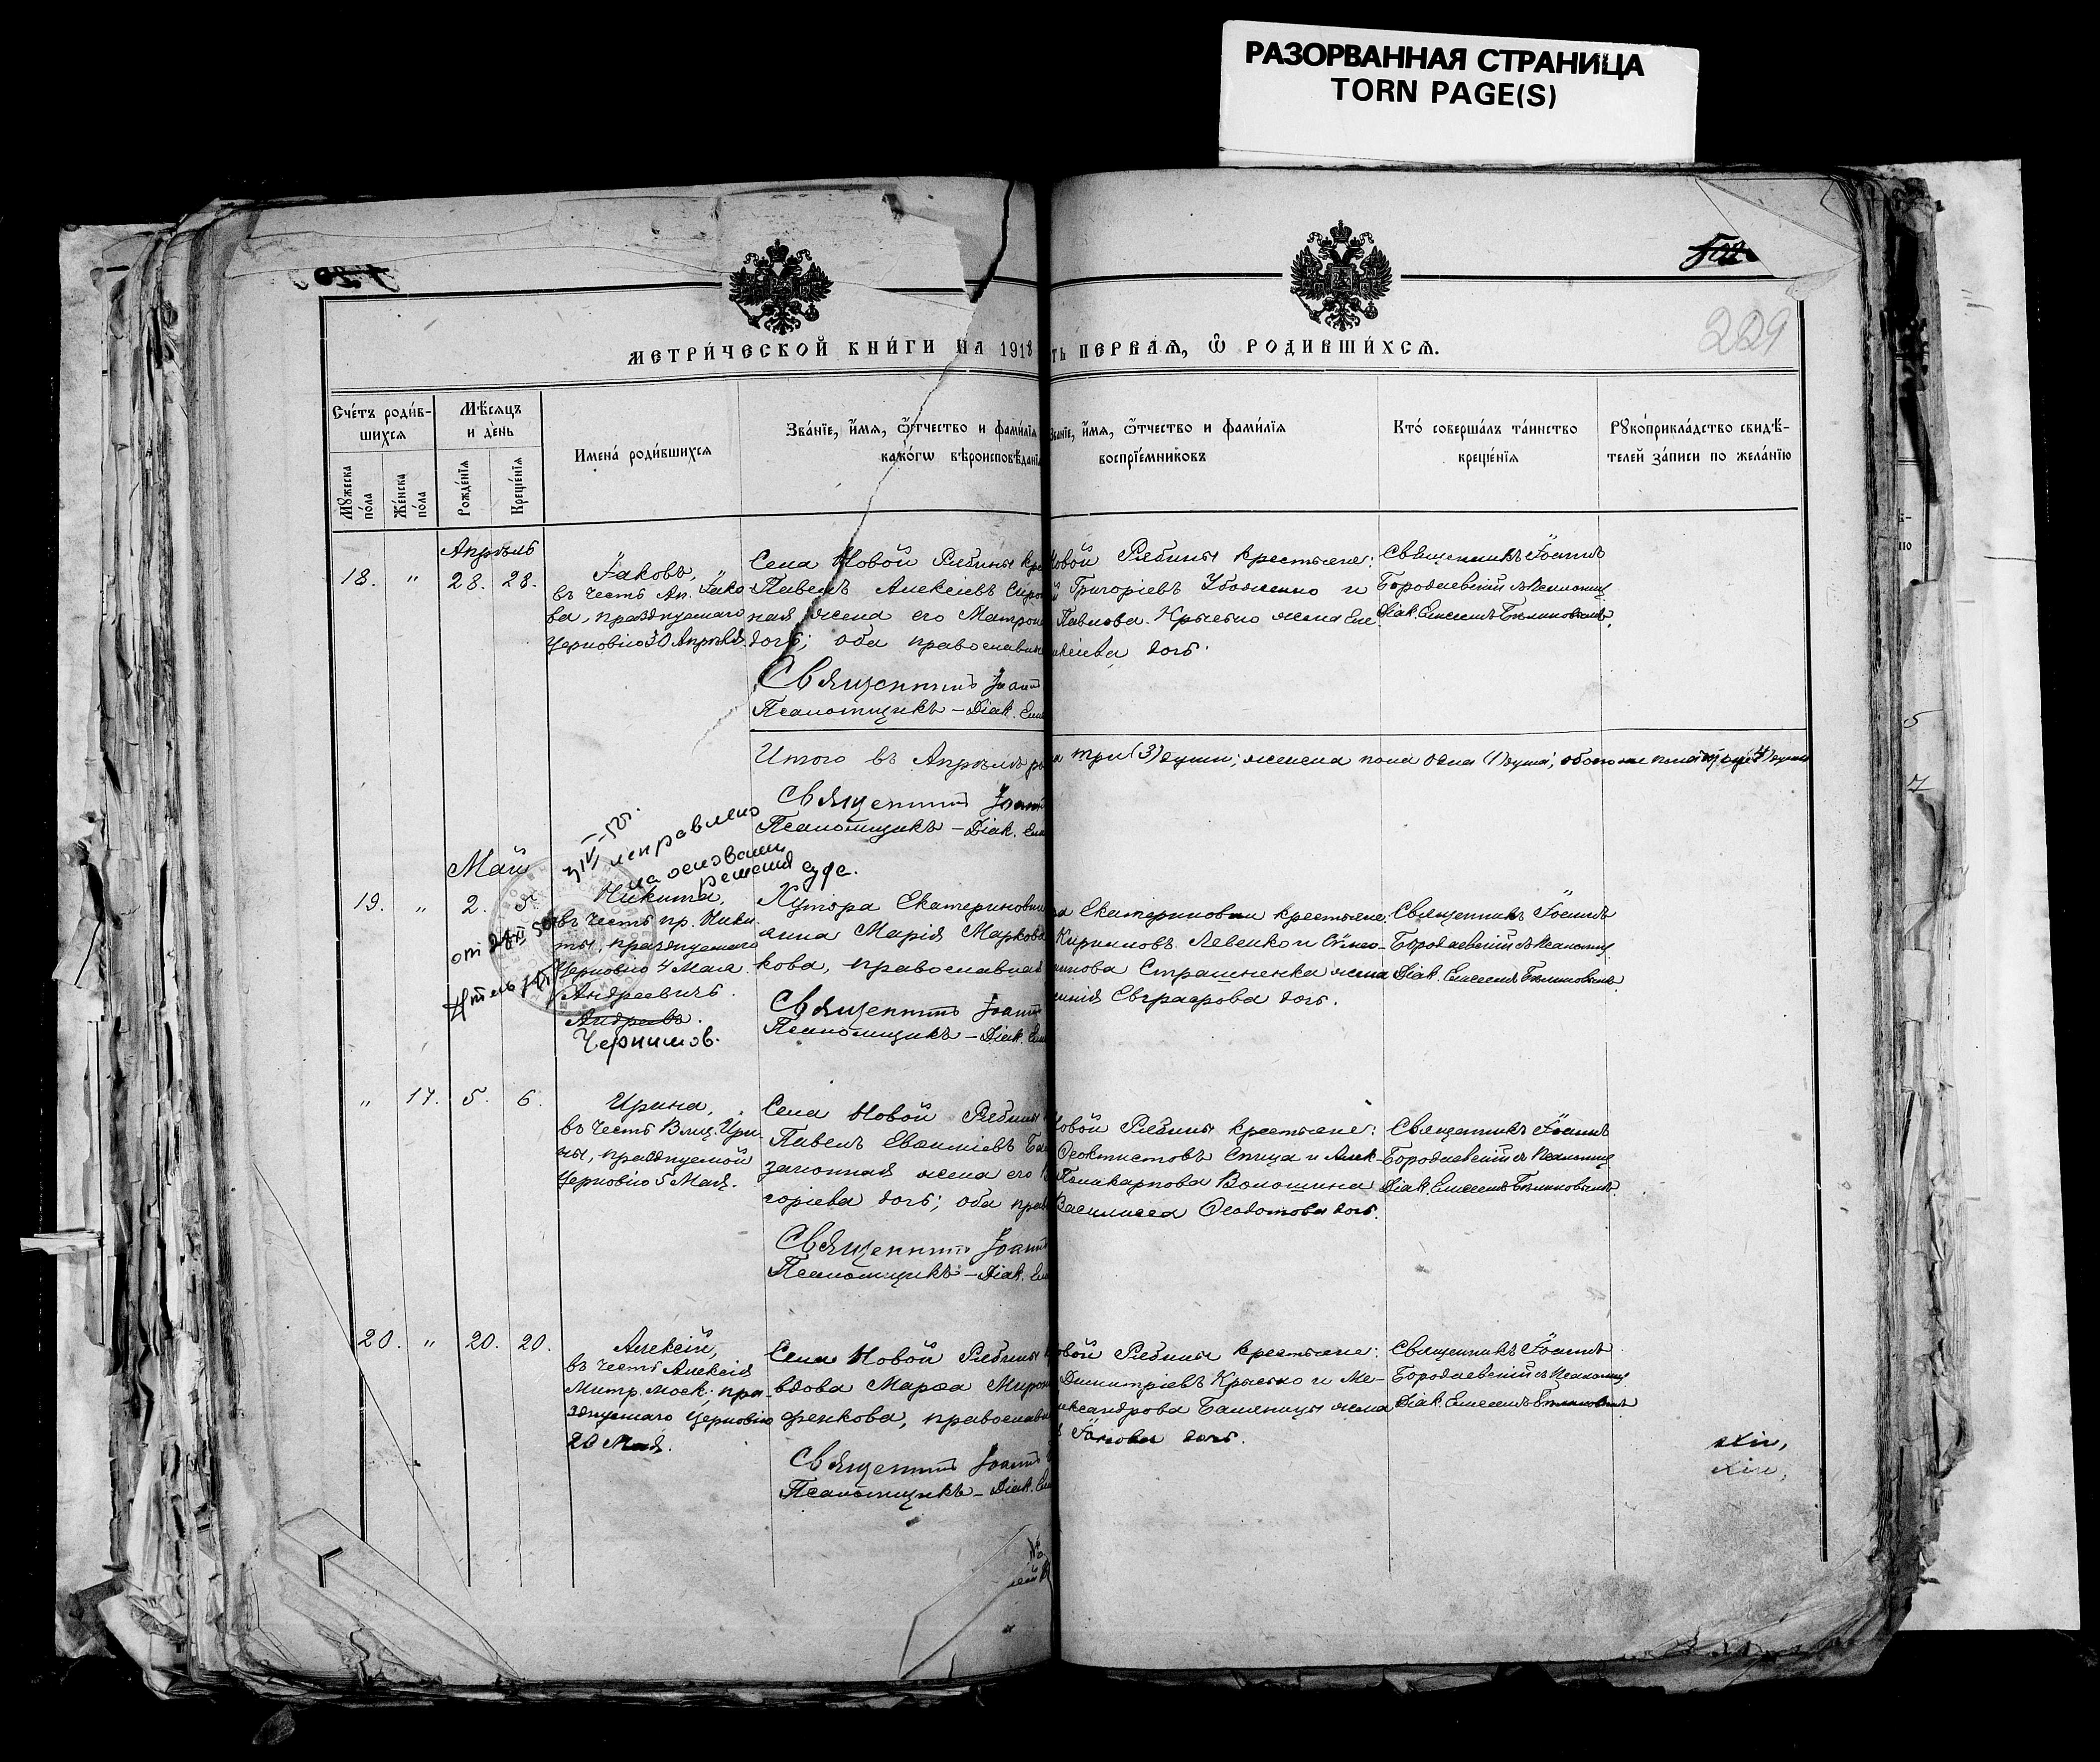 РАЗОРВАННАЯ СТРАНИЦА
TORN PAGE(S)
229
МЕТРИ́ЧЕСКОЙ КНИ́ГИ НА 1918
ть ПЕРВАѦ, Ѿ РОДИВШИ́ХСѦ.
Сче́тъ роди́в-
шихсѧ
Мѣ́сѧцъ
и де́нь
Мꙋжеска по́ла
Же́нска по́ла
Рожде́нїѧ
Креще́нїѧ
Имена́ роди́вшихсѧ
Зва́нїе, и́мѧ, ѻ́тчество и фами́лїѧ
како́гѡ вѣроисповѣ́данїѧ
Зва́нїе, и́мѧ, ѻ́тчество и фами́лїѧ
воспрїе́мниковъ
Кто̀ соверша́лъ та́инство
креще́нїѧ
Рꙋкоприкла́дство свидѣ́-
телей за́писи по жела́нїю
Апрѣль
18. „ 28. 28.
Іаковъ,
въ честь Ап. Іако
ва, празднуемаго
Церковію 30 Апрѣля.
Села Новой Рябины кре
Павелъ Алексіевъ Сиро
ная жена его Матрон
дочь; оба православн
Священникъ Іоанн
Псаломщикъ – Діак. Ели
Новой Рябины крестьяне:
й Григоріевъ Убоженко и
Павлова Крысько жена Еле
ксіева дочь.
Священникъ Іоаннъ
Бородаевскій съ Псаломщ
Діак. Елисеемъ
Итого въ Апрѣлѣ р
а три (3) души; женска пола одна (1) душа; обоего пола (4) души
Священникъ Іоанн
Псаломщикъ – Діак. Ели
исправлено
на основании
решения суда.
Май
19. „ 2. 5.
Никита,
въ честь пр. Ники
ты, празднуемаго
Церковію 4 Мая.
Андреевичъ.
Андреевъ.
Чернишов.
Хутора Екатериновки
янка Марія Маркова
кова, православная
Священникъ Іоанн
Псаломщикъ – Діак. Ели
ра Екатериновки крестьяне
Кирилловъ Левенко и
Страшненка жена
Евграфова дочь.
Священникъ Іоаннъ
Бородаевскій съ Псаломщ
Діак. Елисеемъ
„ 17. 5. 6.
Ирина,
въ честь Влмц. Ири
ны, празднуемой
Церковію 5 Мая.
Села Новой Рябины
Павелъ Евѳиміевъ Ба
законная жена его
горіева дочь; оба прав
Священникъ Іоанн
Псаломщикъ – Діак. Ели
Новой Рябины крестьяне:
Ѳеоктистовъ Спица и Алек-
Поликарпова Волошина
Василисса Ѳеодотова дочь.
Священникъ Іоаннъ
Бородаевскій съ Псаломщ
Діак. Елисеемъ
20. „ 20. 20.
Алексій,
въ честь Алексія
Митр. Моск., пра-
зднуемаго Церковію
20 Мая.
Села Новой Рябины
вдова Марѳа Мирон
фенкова, православн
Священникъ Іоанн
Псаломщикъ – Діак. Ели
овой Рябины крестьяне:
Димитріевъ Крысько и Ме-
лександрова Баляницы жена
Іаковова дочь.
Священникъ Іоаннъ
Бородаевскій съ Псаломщ
Діак. Елисеемъ